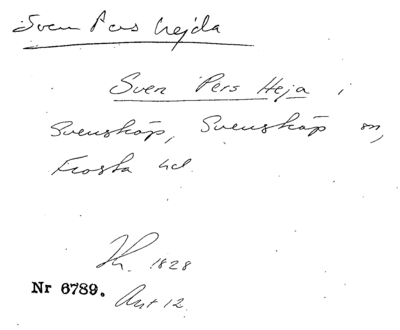 Sven Pers hejda
Sven Pers Heja i
Svensköp, Svensköp sn,
Frosta hd.
1828
Nr 6789. Ant 12